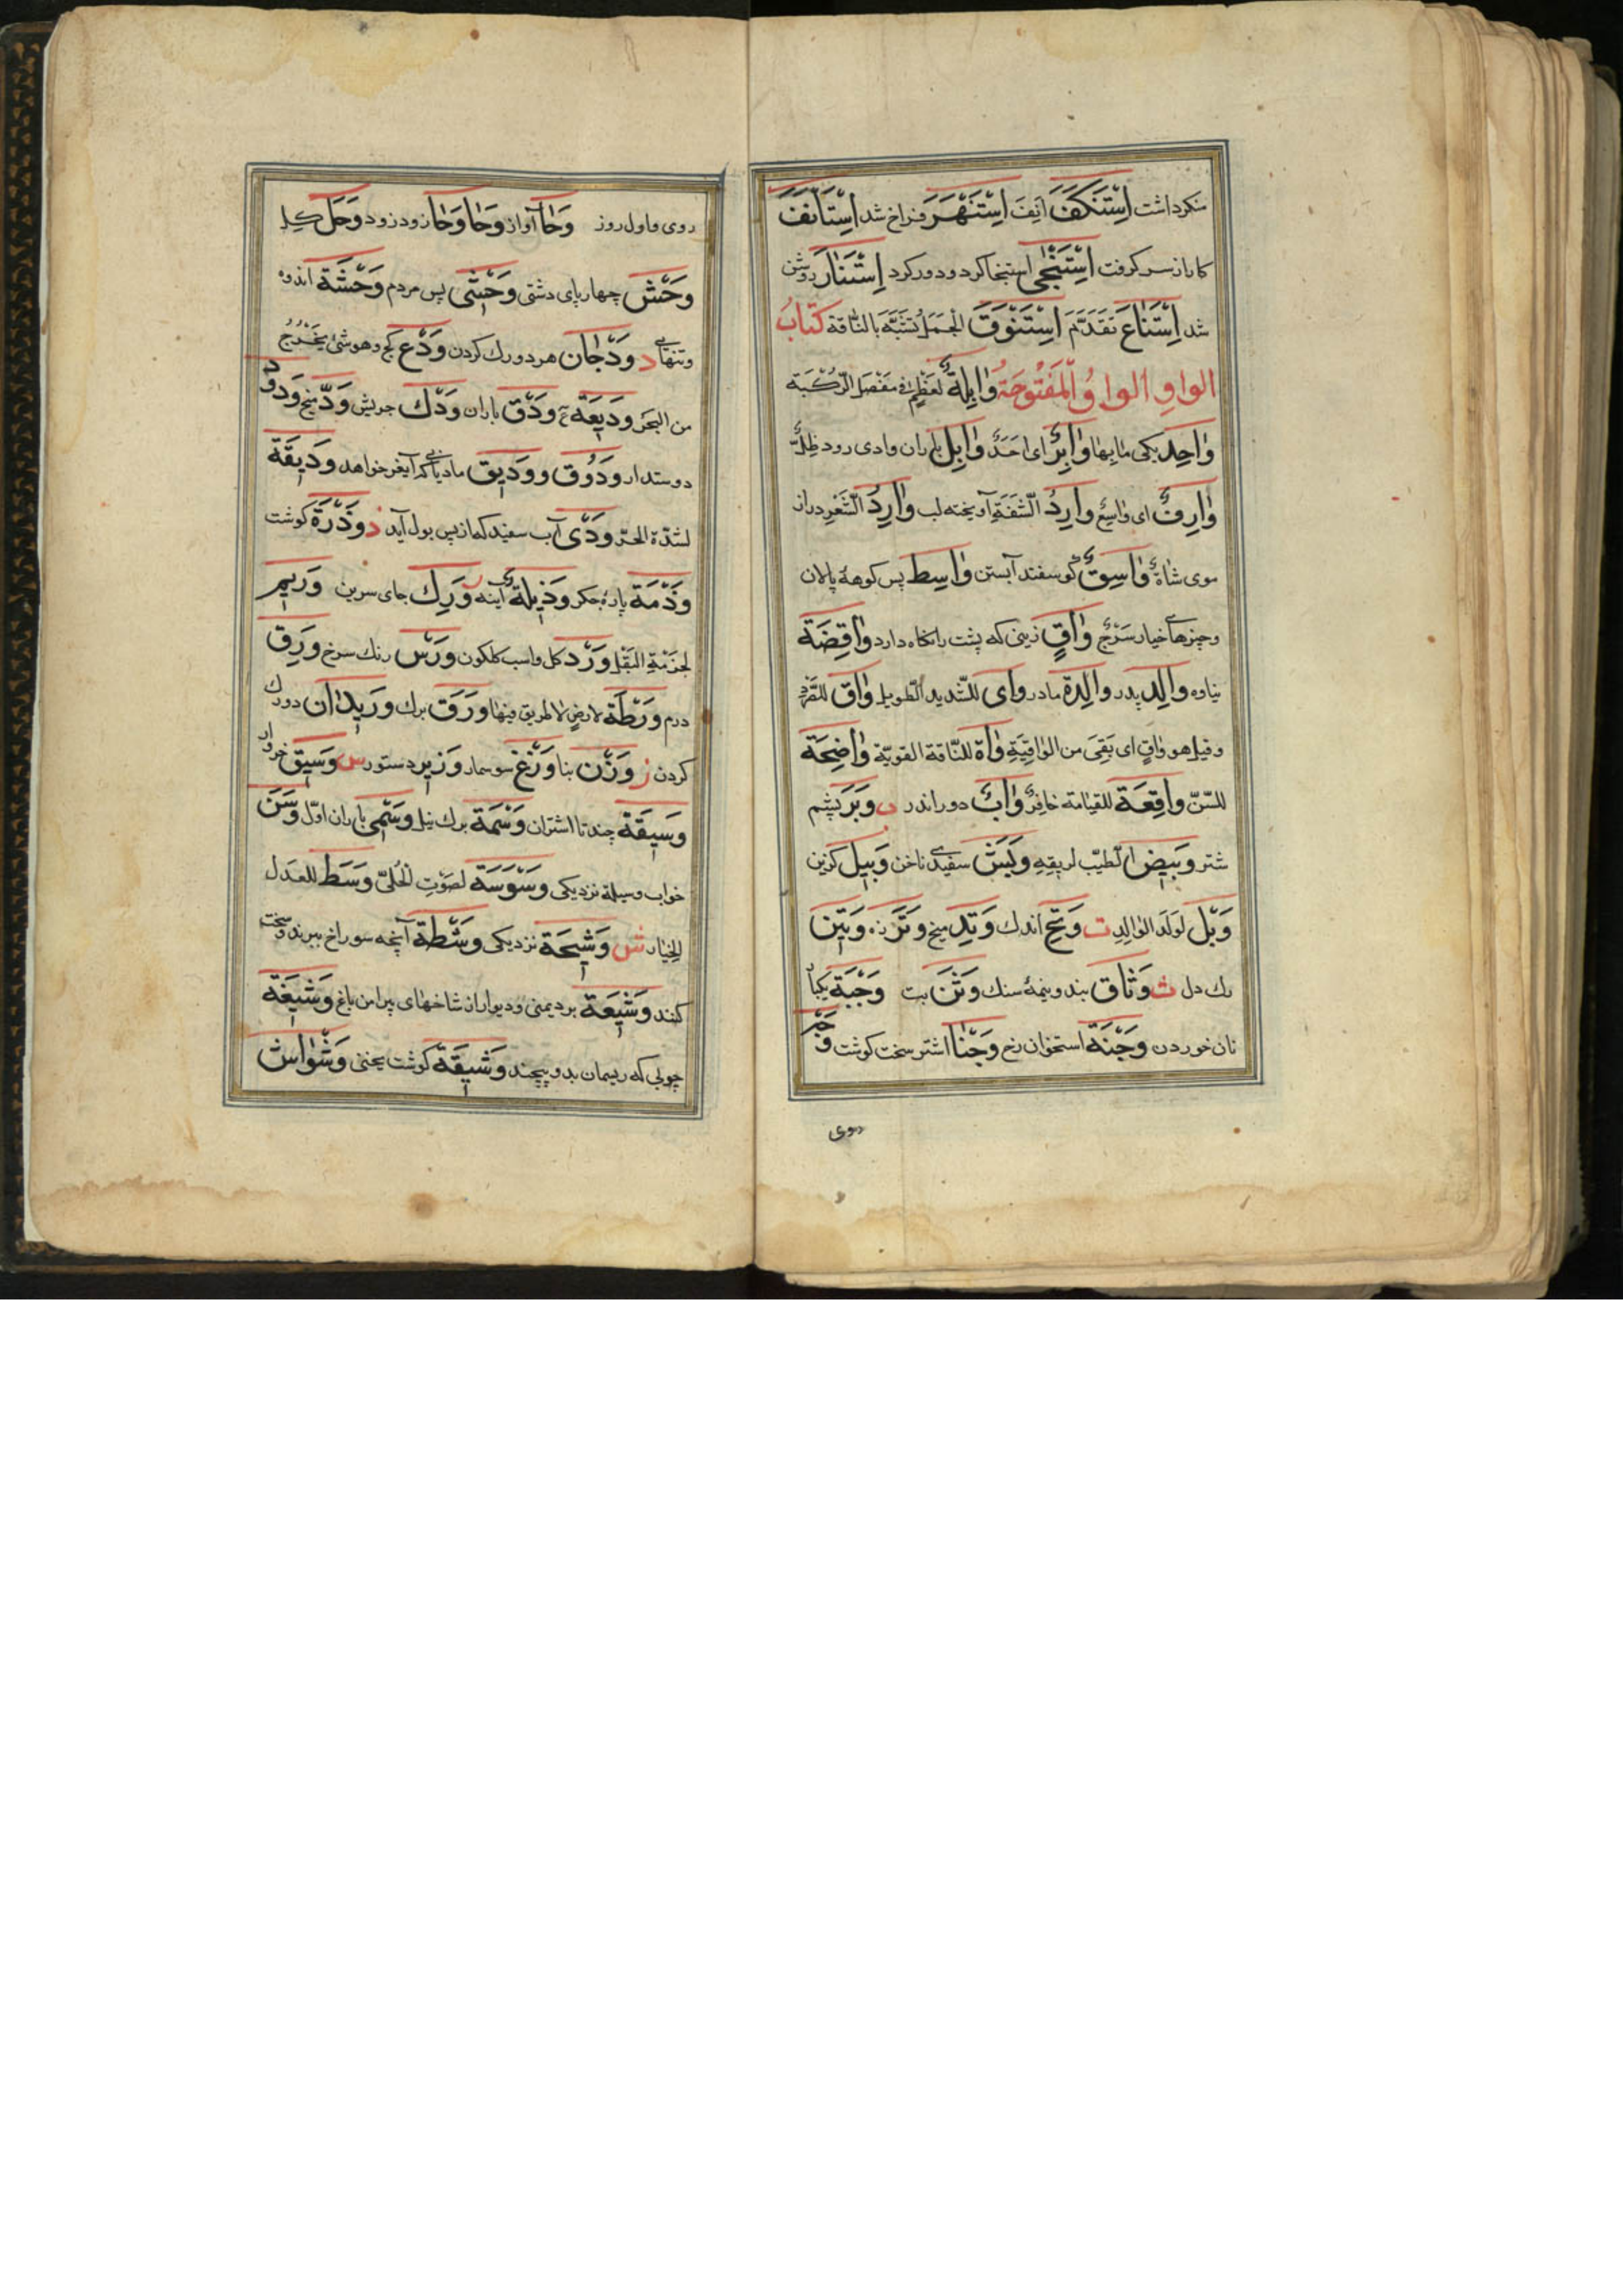 منکر داشت اِسْتَنْکَفَ اَنِفَ اِسْتَنْهَرَ فراخ شد اِسْتَأنَفَ
کار از سر کرفت اِسْتَنْجٰی استنجا کرد و دور کرد اِسْتَنٰارَ روشن
شد اِسْتَنٰاعَ تَقَدَّمَ اِسْتَنْوَقَ الجَمَلُ تَشَبَّهَ بالنّاقة کتابُ
الواوِ الواوُ المَفْتُوحَةُ وٰابِلَةٌ لعَظْمٍ فی مَفْصَلِ الرُّکْبَة
وٰاحِد یکی مٰا بِهٰا وٰابِرٌ ای اَحَدٌ وٰابِل باران وادی رود ظِلٌّ
وٰارِفٌ ای وٰاسِعٌ وٰارِدُ الشَّفَةِ آویخته لب وٰارِدُ الشَّعْرِ دراز
موی شٰاةٌ وٰاسِقٌ کوسفند آبستن وٰاسِط پس کوههٔ پالان
و چیزهای خیار سَرْجٌ وٰاقٍ زینی که پشت را نکاه دارد وٰاقِصَة
والِد پدر والِدَة مادر وٰای للشّدید الطّویل وٰاق للصُّرَد
و قیل هو وٰاقٍ ای بَقِیَ من الوٰاقِیَةِ وٰاة للنّاقة القویّة وٰاضِحَة
للسّنّ وٰاقِعَة للقیٰامة حٰافِرٌ وٰابٌ دور اندر ب وَبَر پشم
شتر وَبیص الطیّب لریقِهِ وَبَش سفیدی ناخن وَبیل کزین
وَبْل لوَلَد الوٰالِدِ ت وَتِح اندک وَتِد میخ وَتَر زه وَتین
رک دل ث وَثٰاق بند و نیمهٔ سنک وَثَن بت وَجْبَة یکبار
نان خوردن وَجْنَة استخوان رخ وَجْنٰا اشتر سخت کوشت وَجْه
روی
روی و اول روز وَحٰا آواز وَحٰا وَحٰا زود زود وَحَل کل
وَحْش چهارپای دشتی وَحْشی پس مردم وَحْشَة اندوه
و تنهائی د وَدَجٰان هر دو رک کردن وَدَع کج و هو شئ یَخْرُجُ
من البَحْر وَدیعَة ع وَدْق باران وَدَک چربش وَدّ میخ وَدود
دوستدار وَدُوق و وَدیق مادیانی که آیغر خواهد وَدیقَة
لشدّة الحرّ وَدْی آب سفید که از پس بول آید ذ وَذْرَة کوشت
وَذَمَة پارهٔ جکر وَذیلَةٌ آینه ر وَرِک جای سرین وَریم
لحزمةِ البَقْل وَرْد کل و اسب کلکون وَرْس رنک سرخ وَرِق
درم وَرْطَة لارضٍ لا طریق فیها وَرَق برک وَریدٰان دو رک
کردن ز وَزْن بنا وَزَغ سوسمار وَزیر دستور س وَسْق خروار
وَسیقَة چند تا اشتران وَسْمَة برک نیل وَسْمی باران اوّل وَسَن
خواب وسیلة نزدیکی وَسْوَسَة لصَوْتِ الحُلِیّ وَسَط للعدل
الخیار ش وَشیجَة نزدیکی وَشْظَة آنچه سوراخ ببرند و سخت
کنند وَشیعَة برد یمنی و دیوار از شاخهای پیرامن باغ وَشیعَة
چوبی که ریسمان بدو پیچند وَشیقَة کوشت پختنی وَشْواش